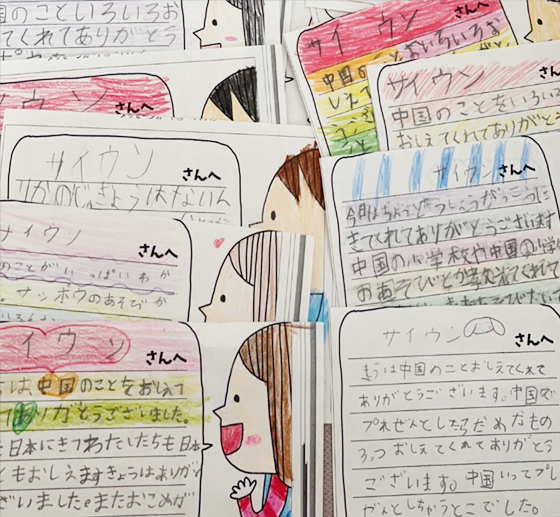 中国のこといろいろお
てくれてありがとう
サイウン
さんへ
中国のことおいろいろお
しえて
ウン
さんへ
サイウン
さんへ
中国のことをいろいろ
おしえてくれてありがと
サイウン
さんへ
りかのじゅぎょうはないん
サイウン
さんへ
今日はちょうどつしょうがっこうに
きてくれてありがとうございます
中国の小学校や中国の
おあそびとか教えてくれて
イウン
さんへ
のことがいっぱいわか
サンポウのあそびが
イウン
さんへ
は、中国のことをおしえて
ありがとうございました。
日本にきつわたいたちも日本
ともおしえますきょうはありが
ざいました。またおこめが
サイウン
さんへ
きょうは中国のことおしえてくれて
ありがとうございます。中国で
プれぜんとしたらだめなもの
3つおしえてくれてありがとう
ございます。中国いってプレ
ぜんとしちゃうとこでした。